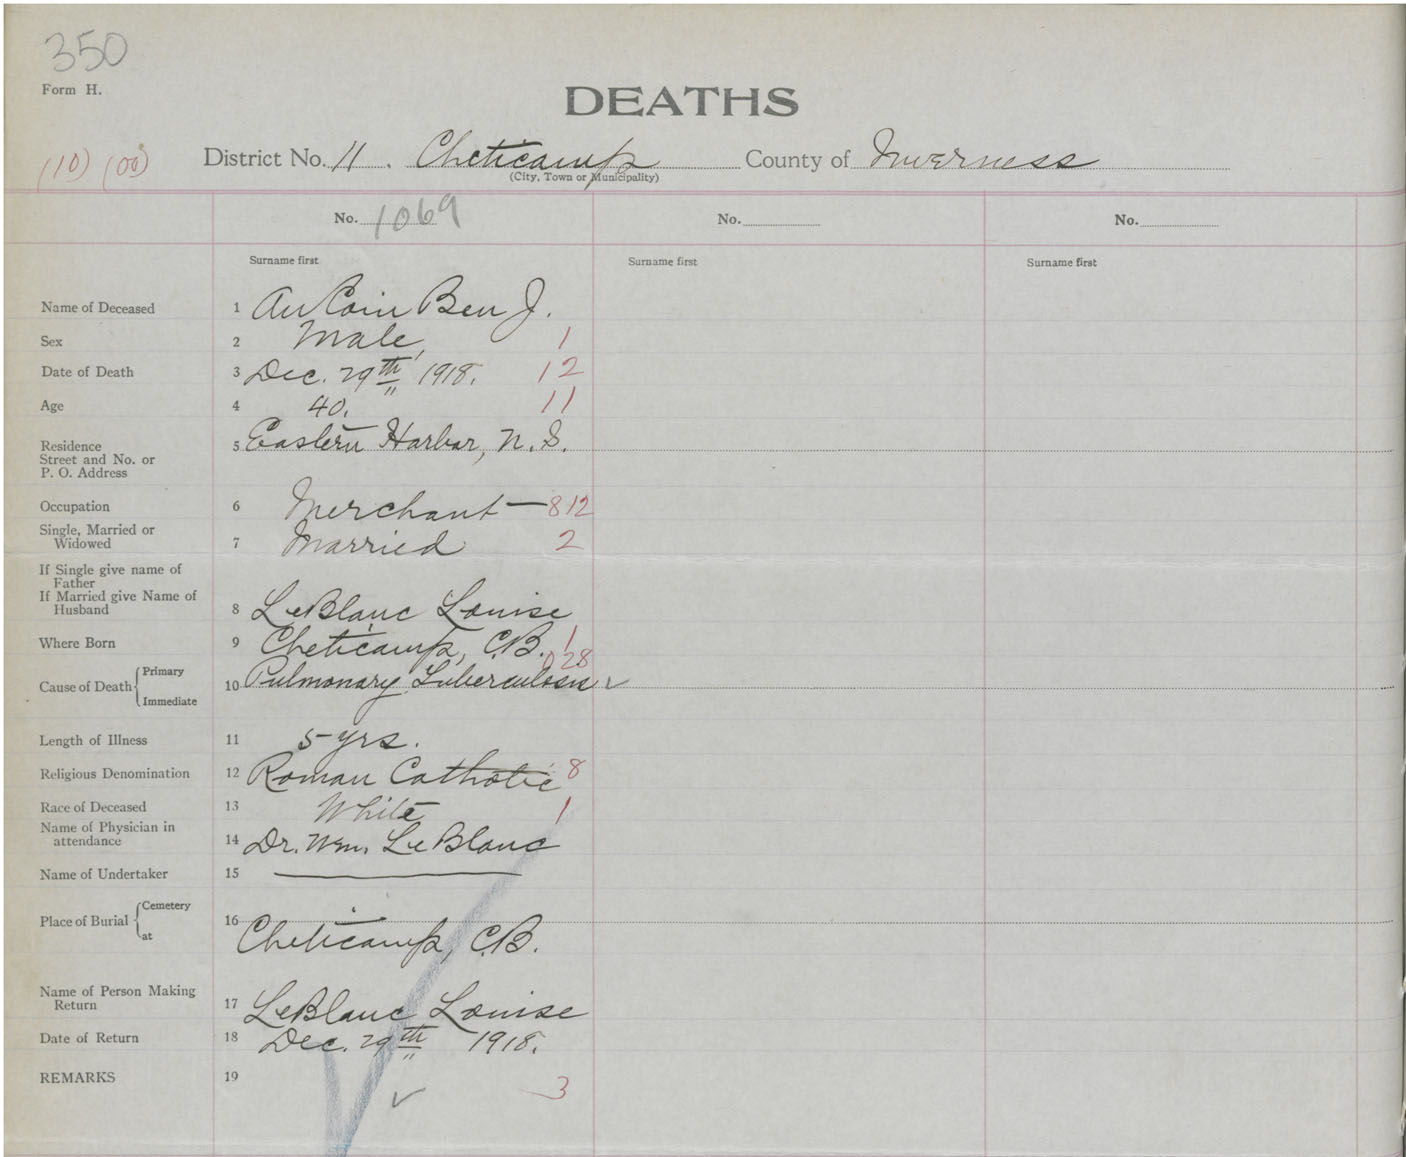 350
Form H.
DEATHS
(10) (00)
District No. 11. Cheticamp County of Inverness
(City, Town or Municipality)
No. 1069 No. No.
Surname first Surname first Surname first
Name of Deceased 1 AuCoin Ben J.
Sex 2 Male, 1
Date of Death 3 Dec. 29th 1918. 12
Age 4 40. 11
Residence
Street and No. or
P. O. Address
5 Eastern Harbor, N. S.
Occupation 6 Merchant — 812
Single, Married or
Widowed 7 Married 2
If Single give name of
Father
If Married give Name of
Husband 8 LeBlanc Louise
Where Born 9 Cheticamp, C.B. 1
028
Cause of Death { Primary
Immediate
10 Pulmonary Tuberculosis ✓
Length of Illness 11 5 yrs.
Religious Denomination 12 Roman Catholic 8
Race of Deceased 13 White 1
Name of Physician in
attendance 14 Dr. Wm. LeBlanc
Name of Undertaker 15
Place of Burial { Cemetery
at
16 Cheticamp, C.B.
Name of Person Making
Return 17 LeBlanc Louise
Date of Return 18 Dec. 29th 1918.
REMARKS 19
✓ 3